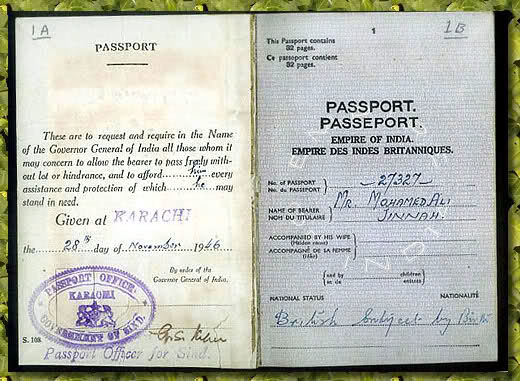 1A
PASSPORT
These are to request and require in the Name
of the Governor General of India all those whom it
may concern to allow the bearer to pass freely with-
out lot or hindrance, and to afford him every
assistance and protection of which he may
stand in need.
Given at KARACHI
the 28th day of November 1946
By order of the
Governor General of India.
PASSPORT OFFICE.
KARACHI
GOVERNMENT OF SIND.
S. 108.
Passport Officer for Sind.
1
1B
This Passport contains
32 pages.
Ce passeport contient
32 pages.
PASSPORT.
PASSEPORT.
EMPIRE OF INDIA.
EMPIRE DES INDES BRITANNIQUES.
No. of PASSPORT
No. du PASSEPORT
27327
NAME OF BEARER
NOM DU TITULAIRE
Mr. MOHAMED ALI
JINNAH.
ACCOMPANIED BY HIS WIFE
(Maiden name)
ACCOMPAGNÉ DE SA FEMME
(Née)
and by
et de
children
enfants
NATIONAL STATUS
NATIONALITÉ
British Subject by Birth